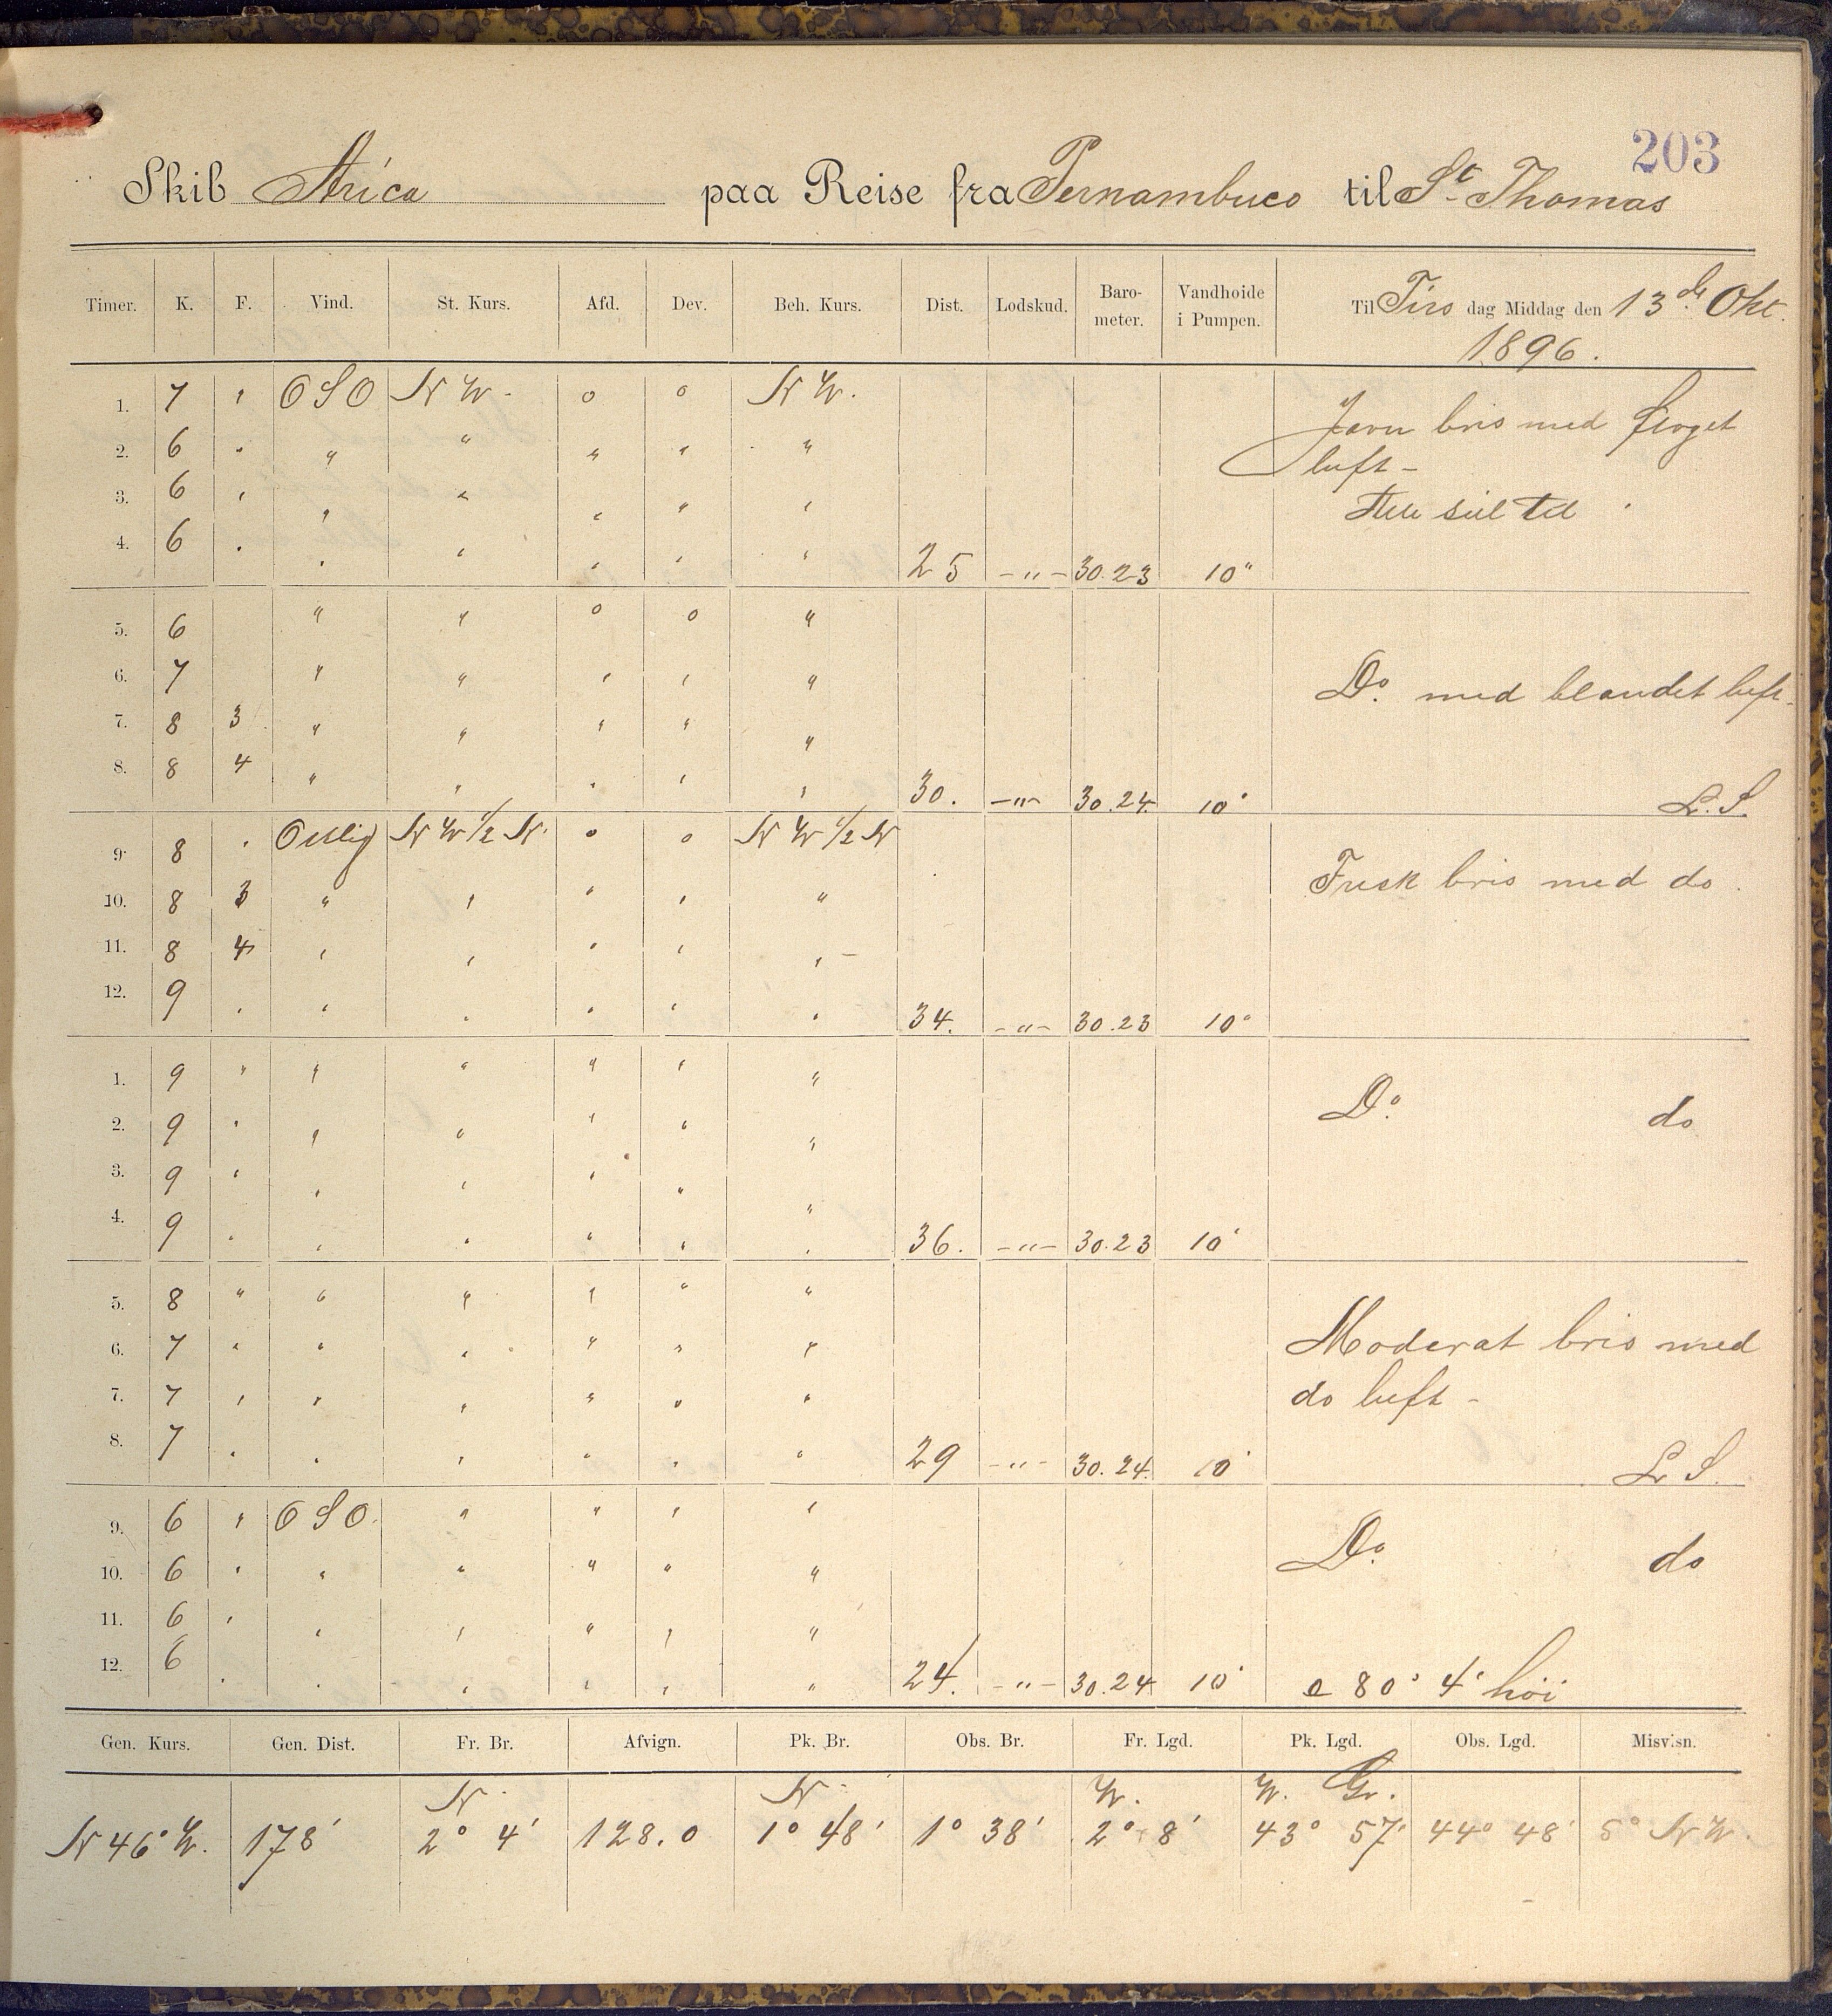 203
Skib Arica paa Reise fra Pernambuco til St Thomas
Timer. K. F. Vind. St. Kurs. Afd. Dev. Beh. Kurs. Dist. Lodskud. Baro-meter. Vandhoide i Pumpen. Til Tirs dag Middag den 13de Okt. 1896.
1. 7 " OSO NW. 0 0 NW. Jevn bris med
2. 6 " " " " " " luft -
3. 6 " " " " " "
4. 6 " " " " " " 25 -"- 30.23 10"
5. 6 " " 0 0 "
6. 7 " " " " " Do. med blandet luft.
7. 8 3 " " " " "
8. 8 4 " " " " " 30. -"- 30.24 10" L.S.
9. 8 " Ostlig NW 1/2 N. 0 0 NW 1/2 N Frisk bris med do.
10. 8 3 " " " " "
11. 8 4 " " " " " -
12. 9 " " " " " " 34. -"- 30.23 10"
1. 9 " " " " " " Do. do
2. 9 " " " " " "
3. 9 " " " " " "
4. 9 " " " " " " 36. -"- 30.23 10"
5. 8 " " " " " " Moderat bris med
6. 7 " " " " " " do luft -
7. 7 " " " " " "
8. 7 " " " " " " 29 -"- 30.24. 10" L S.
9. 6 " OSO. " " " " Do. do
10. 6 " " " " " "
11. 6 " " " " " "
12. 6 " " " " " " 24. -"- 30.24 10" 80° 4' höi
Gen. Kurs. Gen. Dist. Fr. Br. Afvign. Pk. Br. Obs. Br. Fr. Lgd. Pk. Lgd. Obs. Lgd. Misvisn.
N. N. W. W. Gr.
N 46° W. 178' 2° 4' 128.0 1° 48' 1° 38' 2° 8' 43° 57' 44° 48' 5° NW.